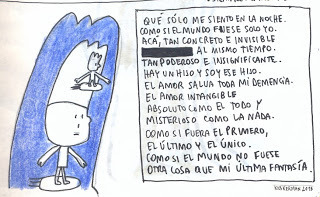 QUÉ SÓLO ME SIENTO EN LA NOCHE.
COMO SI EL MUNDO FUESE SOLO YO.
ACÁ, TAN CONCRETO E INVISIBLE
AL MISMO TIEMPO.
TAN PODEROSO E INSIGNIFICANTE.
HAY UN HIJO Y SOY ESE HIJO.
EL AMOR SALVA TODA MI DEMENCIA.
EL AMOR INTANGIBLE
ABSOLUTO COMO EL TODO Y
MISTERIOSO COMO LA NADA.
COMO SI FUERA EL PRIMERO,
EL ÚLTIMO Y EL ÚNICO.
COMO SI EL MUNDO NO FUESE
OTRA COSA QUE MI ÚLTIMA FANTASÍA.